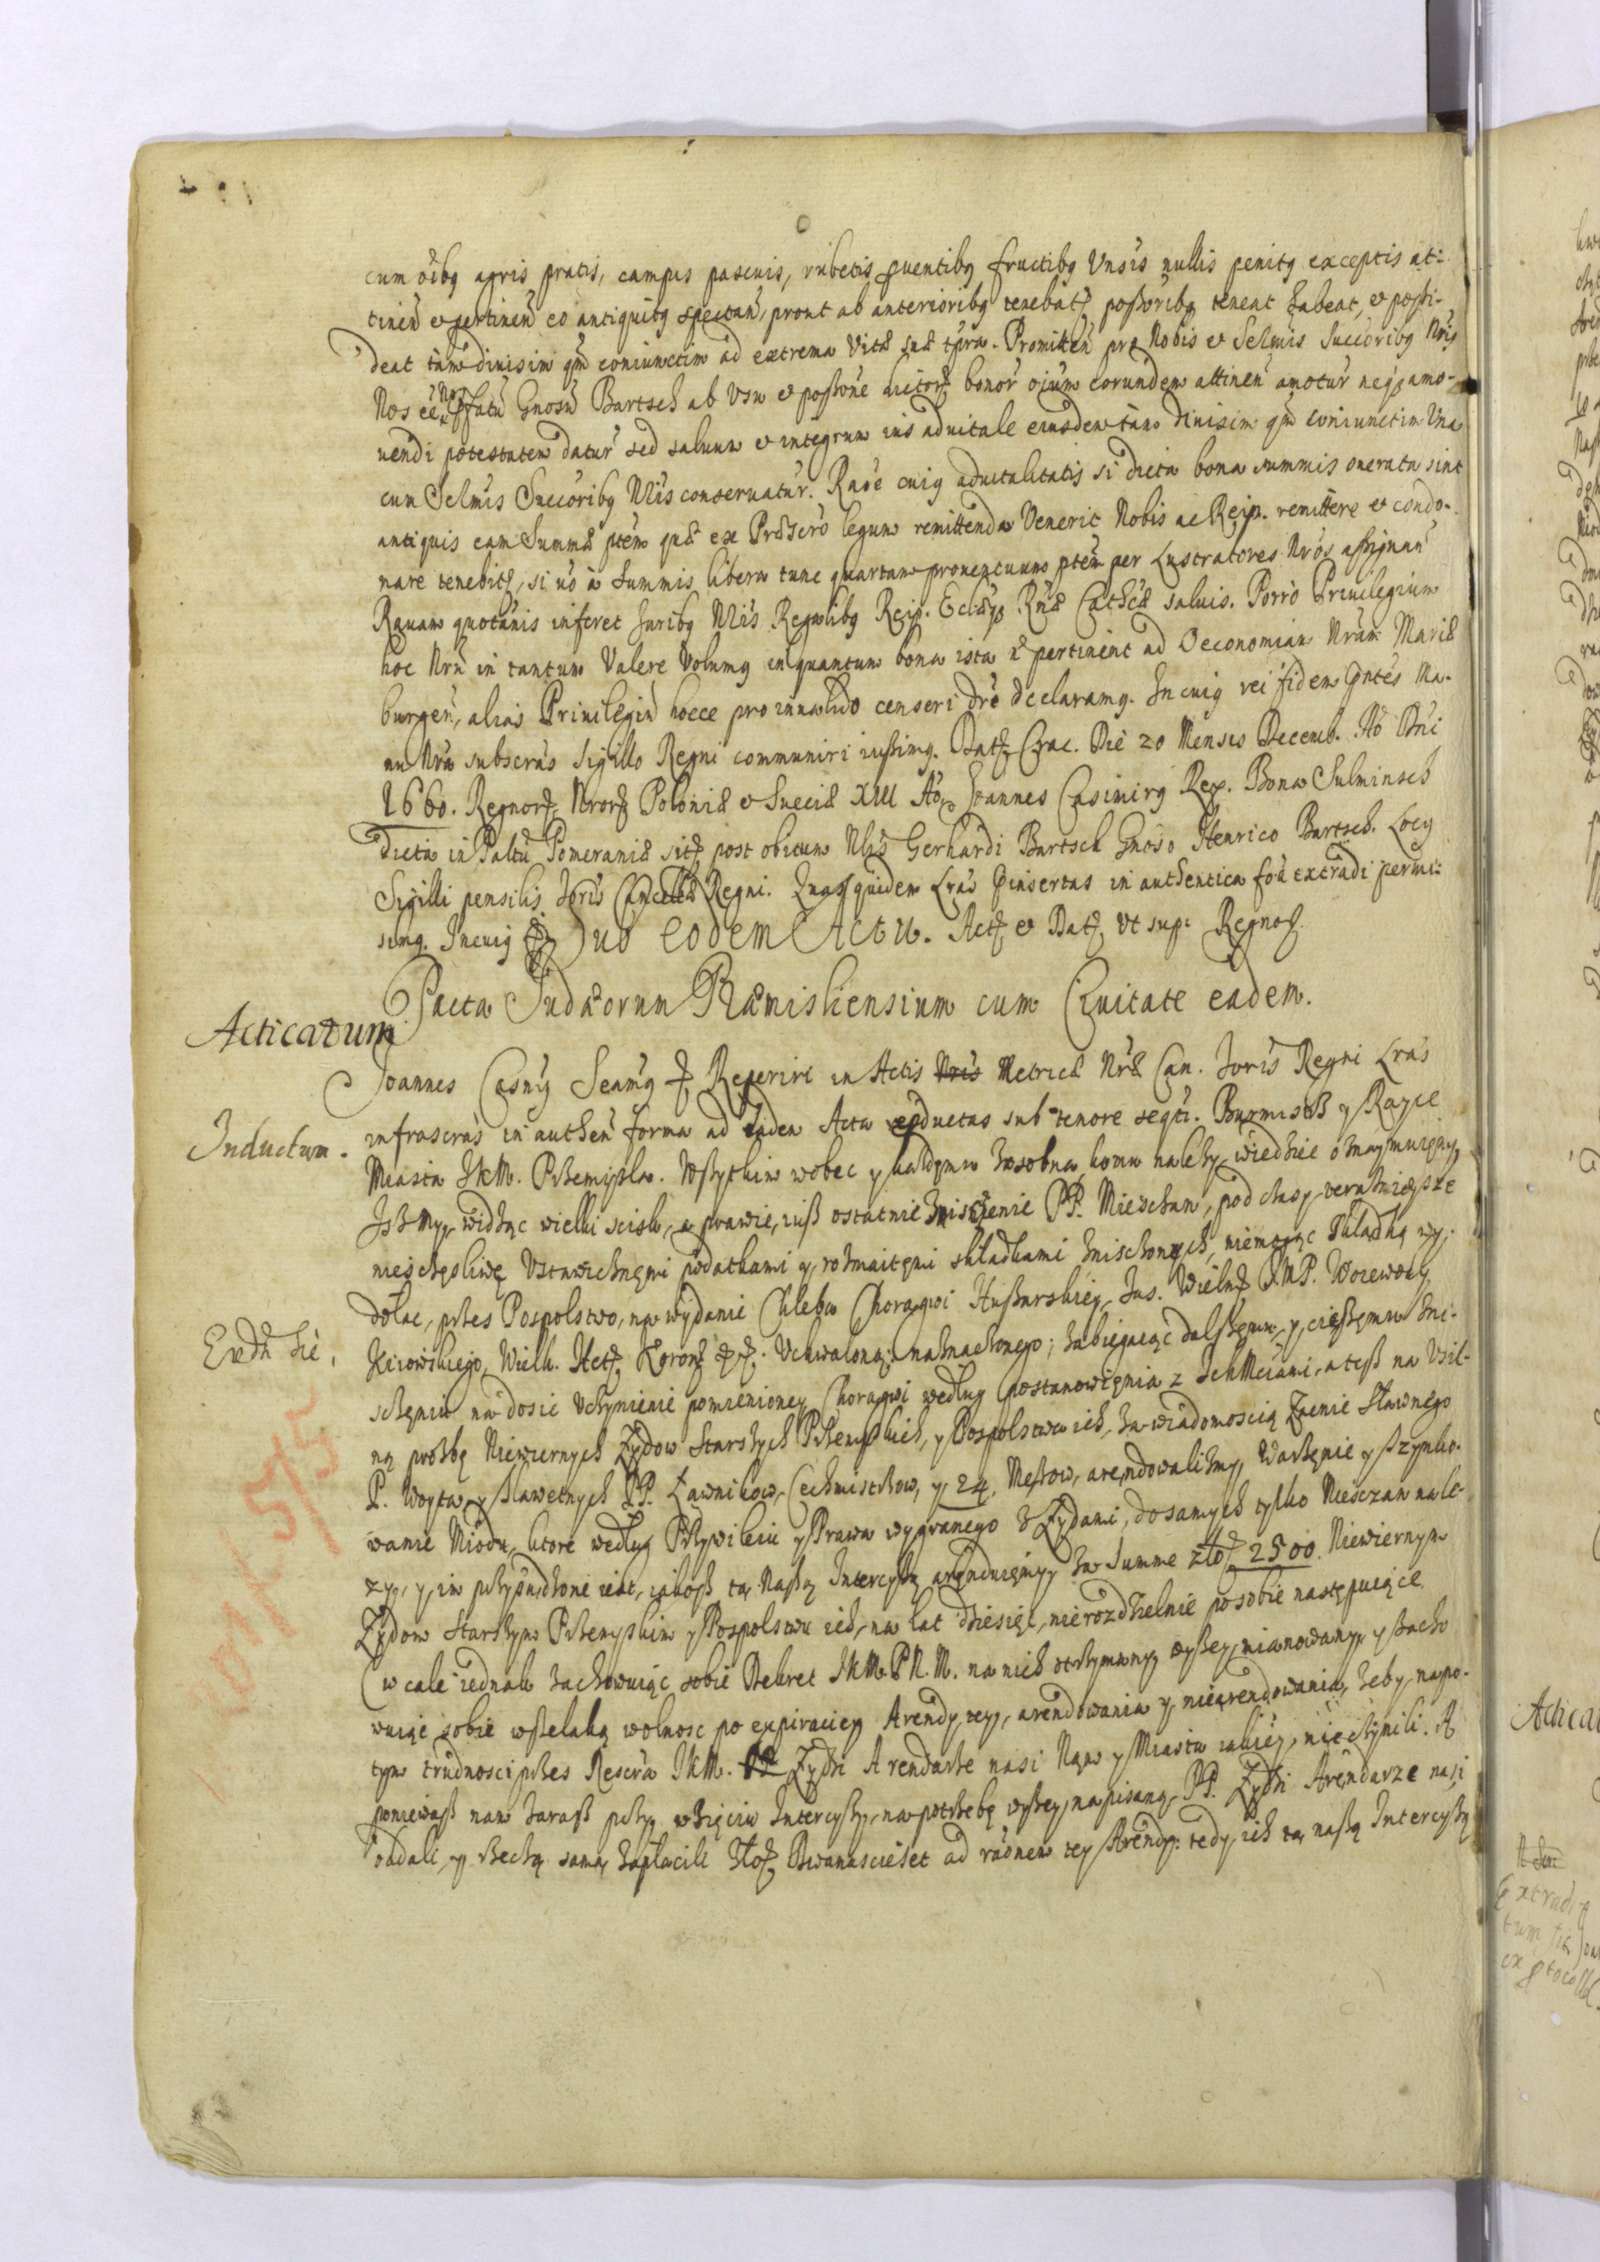 cum oibq agris pratis, campis pascuis, rubetis puentibq fructibq Vnsis nullis penitq exceptis at:
tinen et pertinen eo antiquitq spectan, prout ab anterioribq tenebatr possoribq teneat habeat, et possi-
deat tam divisim qm coniunctim ad extrema Vitæ suæ tpra. Promitten pro Nobis et Selmis Succoribq Nris
Nos Gnosu Bartsch ab Vsu et possone bonor oium eorundem attinen amotur neqz amo-
uendi potestatem datur sed saluum et integrum ius aduitale eiusdem tam diuisim qm coniunctim Vna
cum Selmis Succoribq Nris conseruatur. Raoe cuiq aduitalitatis si dicta bona summis onerata sint
antiquis eam Summæ ptem quæ ex Præscro legum remittenda Venerit Nobis ac Reip. remittere et condo-
nare tenebitr, si uo a summis libera tunc quartam prouentuum ptem per Lustratores Nros assignan
Rauam quotanis inferet Juribq Nris Regalibq Reip. Eccl Rnæ Cathcæ saluis. Porro Priuilegium
hoc Nrm in tantum Valere Volumq inquantum bona ista n pertinent ad Oeconomiam Nram Mariæ
burgen, alias Priuilegiu hocce pro inualido censeri dre declaramq. In cuiq rei fidem pntes Ma-
nu Nra subscras Sigillo Regni communiri iussimq. Datr Crac. Die 20 Mensis Decemb. Ao Dni
1660. Regnorr Nrorr Poloniæ et Sueciæ XIII Ao Joannes Casimirq Rex. Bona Sulminsch
dicta in Paltu Pomeraniæ sitr post obitum Nlis Gerhardi Bartsch Gnoso Henrico Bartsch. Locq
Sigilli pensilis Joris Cancellæ Regni. Quas quidem Lras pinsertas in authentica foa extradi permi:
simq. In cuiq Duo eodem Actu. Actr et Datr Vt sup: Regnor.
Pacta Judæorum Præmisliensium cum Ciuitate eadem.
Acticatum
Joannes Casmq Seamq Reperiri in Actis Nris Metricæ Nræ Can. Joris Regni Lras
Inductum.
infrascras in authen forma ad eadem Acta sub tenore seqti. Burmistrz y Rayce
Miasta JKM. Przemyslu. Wszytkim wobec y kazdemu zosobna komu nalezy, wiedziec oznaymuięmy,
Isz my, widząc wielki scisk, a prawie, iusz ostatnie zniszczenie PP. Mieszczan, pod czasy teraznieysze
nieszczęsliwę Vstawicznęmi podatkami y rozmaitęmi składkami zniszczonych, niemogąc składką wy-
dołac, przes Pospolstwo, na wydanie Chleba Chorągwi Husarskiey, Jas. Wielmr JMP. Woiewody
Kiiowskiego, Wielk. Hetr Koronr Vchwaloną; naznaczonego; zabiegaiąc dalszęmu, y, cięszęmu zni-
Extr. sie,
sczęniu na dosic Vczynienie pomienioney Chorągwi według postanowięnia z IchMciami, a tesz na Vsil-
ną prozbę Niewiernych Zydow Starszych Przemyskich, y Pospolstwa ich, za wiadomoscią Zacnie Sławnego
P. Woyta, y Sławetnych PP. Ławnikow, Cechmistrzow, y 24. Męzow, arędowalismy, Warzęnie y szynko-
wanie Miodu, ktore według Przywileiu y Prawa wygranego z Zydami, do samych tylko Mieszczan nale-
zy, y, im przysądzone iest, iakosz tą Naszą Intercyzą aręduięmy, za Summe złor 2500. Niewiernym
Zydom Starszym Przemyskim y Pospolstwu ich, na lat dziesięc, nierozdzielnie po sobie następuiące
(w cale iednak zachowuiąc sobie Dekret JKM. PNM. na nich otrzymany, wyszey, mianowany, y zacho
wuiąc sobie wszelaką wolnosc po expiraciey Arendy tey, arendowania y, niearendowania, zeby napo-
tym trudnosci przes Rescra JKM. Zydzi Arendarze nasi Nam y Miastu iakiey, nieczynili. A
poniewasz nam zarasz przy wzięciu Intercyzy, na potrzebę wyszey, napisaną, PP. Zydzi Arędarze nasi
oddali, y rzeczą samą zapłacili złor Dwanascieset ad raonem tey Arędy: tedy, ich tą naszą Intercyzą
1075/5